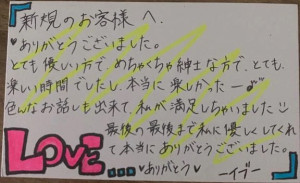 新規のお客様へ.
♥ありがとうございました。
とても優しい方で、めちゃくちゃ紳士な方で、とても、
楽しい時間でしたし、本当に楽しかったー♪
色んなお話しも出来て、私が満足しちゃいました!!
最後の最後まで私に優しくしてくれ
て本当にありがとうございました。
LOVE...♥ありがとう♥ーイブー